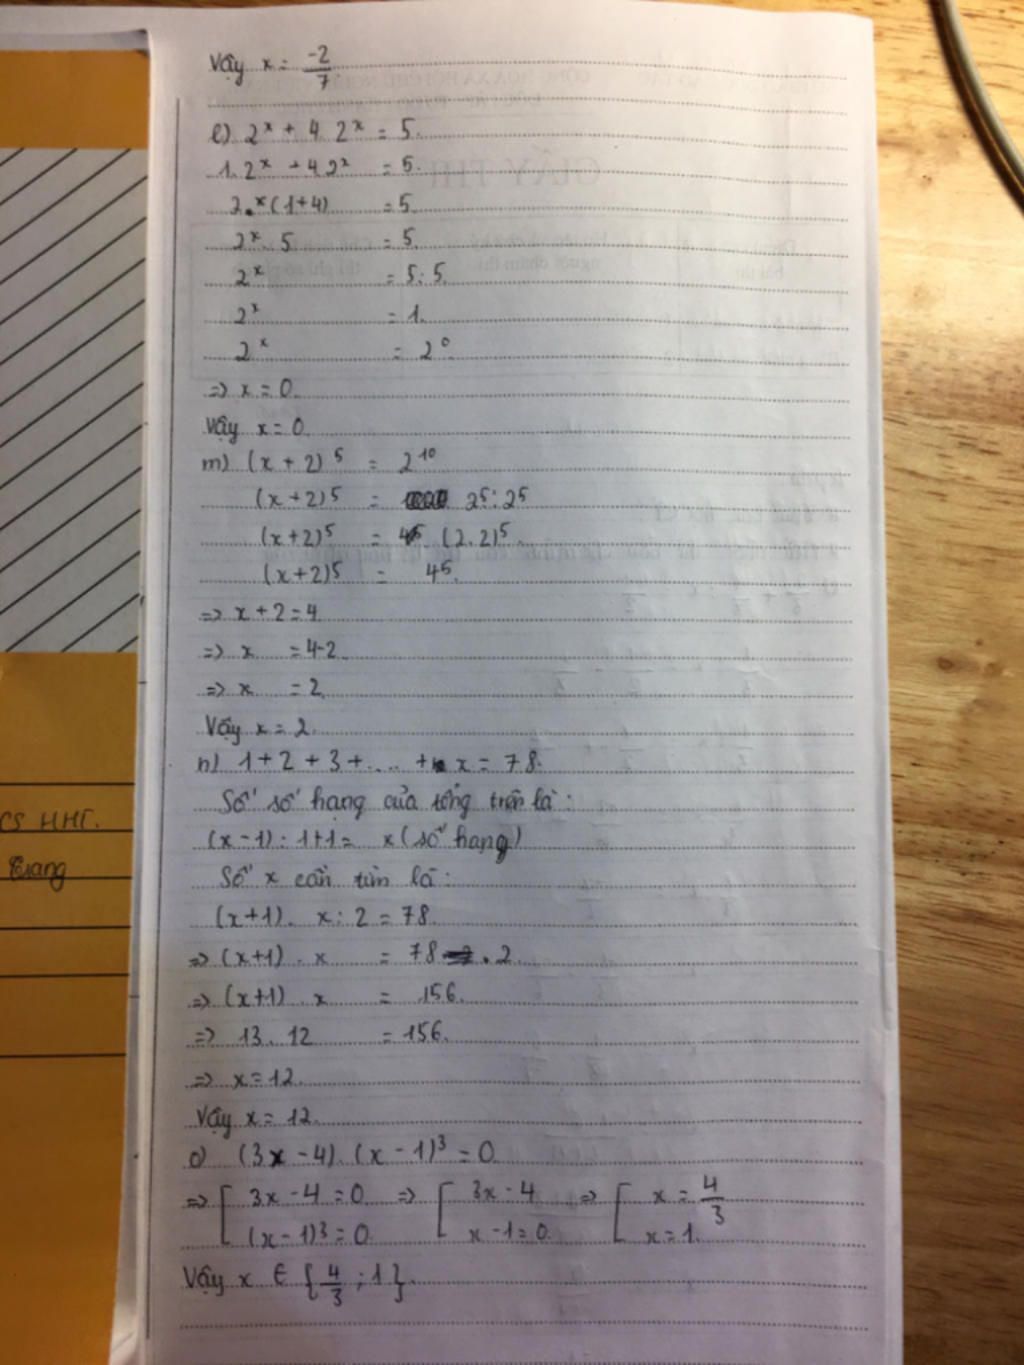 Vậy x = -2/7
l) 2ˣ + 4 2ˣ = 5.
1. 2ˣ + 4 2ˣ = 5.
2.ˣ(1+4) = 5.
2ˣ. 5 = 5.
2ˣ = 5:5.
2ˣ = 1.
2ˣ = 2⁰
=> x = 0.
Vậy x = 0.
m) (x + 2)⁵ = 2¹⁰
(x + 2)⁵ = 2⁵: 2⁵
(x+2)⁵ = (2.2)⁵.
(x+2)⁵ = 4⁵.
=> x + 2 = 4
=> x = 4-2.
=> x = 2.
Vậy x = 2.
n) 1+2+3+.... + x = 78.
Số số hạng của tổng trên là:
(x-1): 1+1 = x (số hạng)
Số x cần tìm là:
(x+1). x: 2 = 78.
=> (x+1) . x = 78 . 2.
=> (x+1) . x = 156.
=> 13. 12 = 156.
=> x = 12.
Vậy x = 12.
o) (3x - 4). (x - 1)³ = 0.
=> [ 3x - 4 = 0. => [ 3x - 4 => [ x = 4/3
(x-1)³ = 0. x - 1 = 0. x = 1.
Vậy x ∈ {4/3 ; 1}.
CS HHT.
Trang